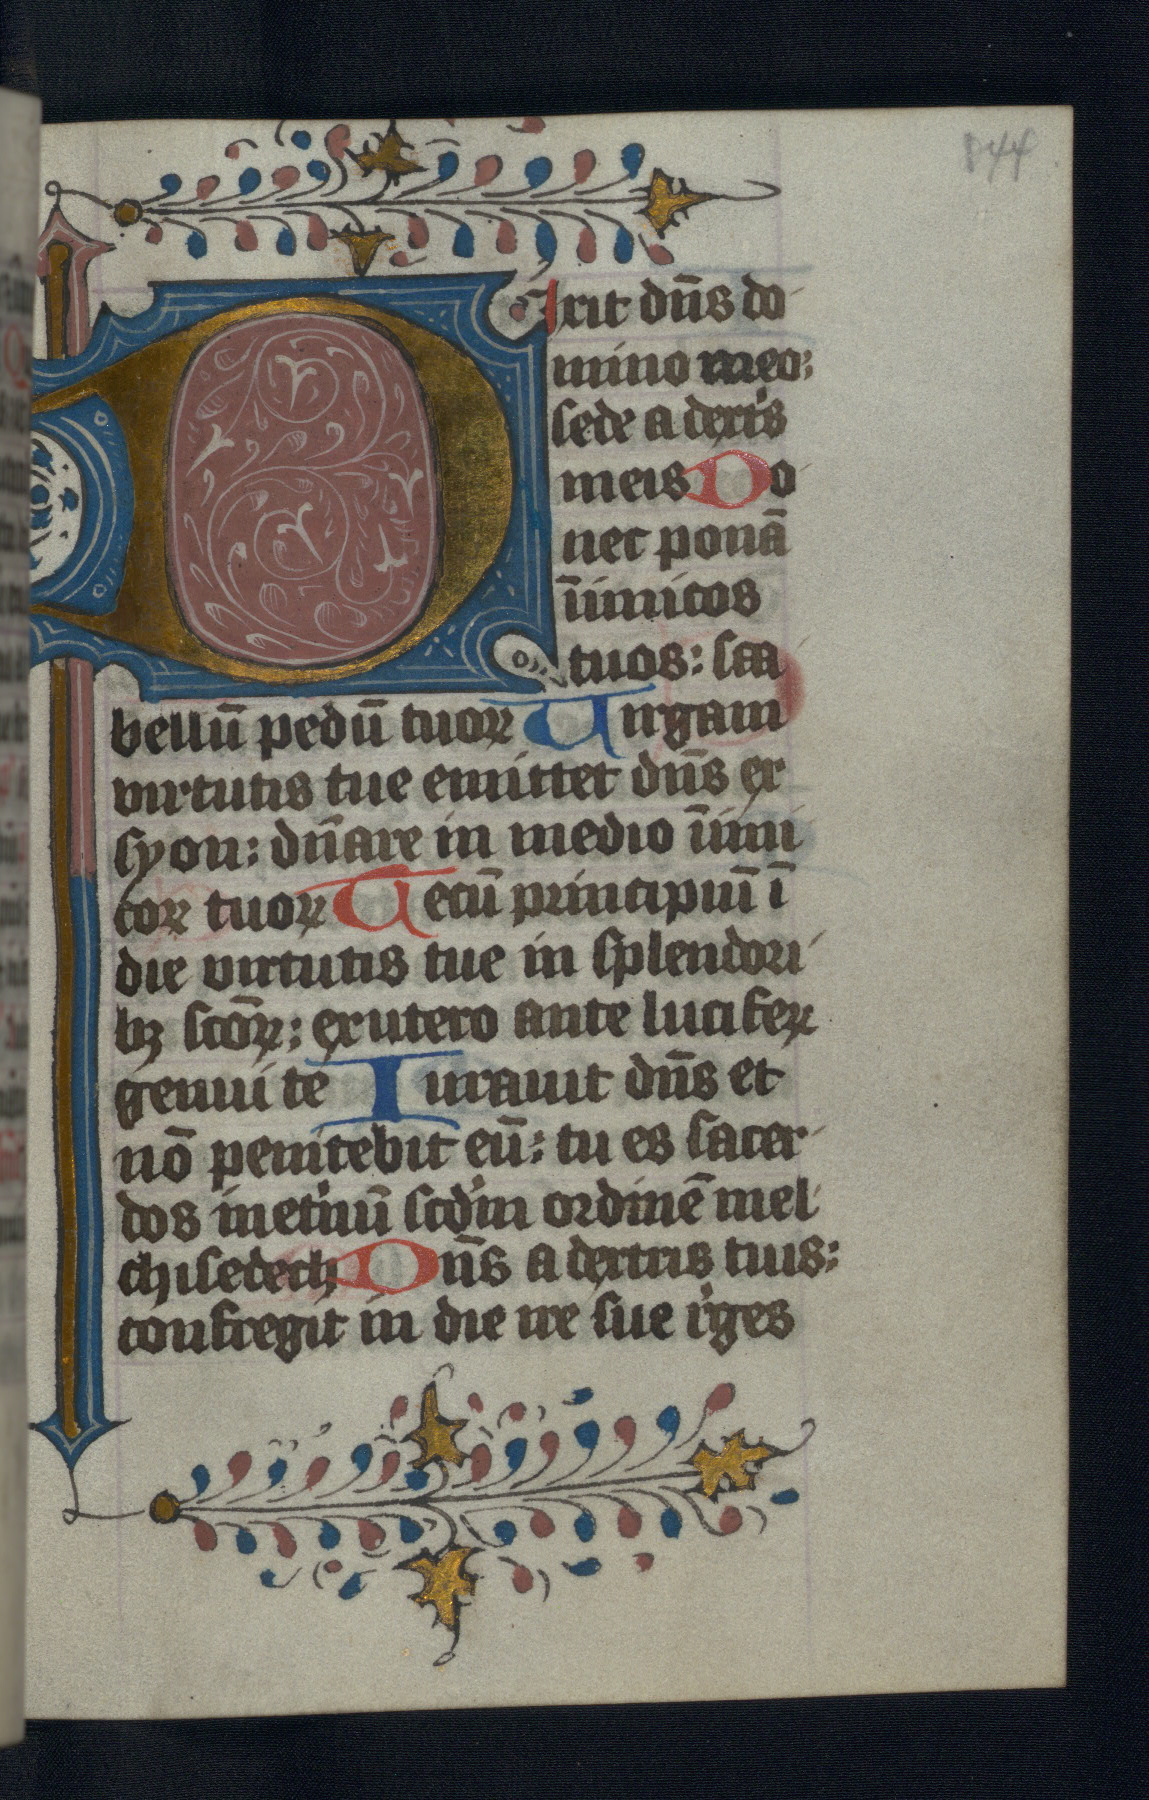 844
DIxit dn̄s do
mino meo:
sede a dextͥs
meis Do
nec ponā
īimicos
tuos: sca
bellū pedū tuoꝝ Uirgam
virtutis tue emittet dn̄s ex
syon: dn̄are in medio īimi
coꝝ tuoꝝ Tecū principiū ī
die virtutis tue in splendori
bꝫ scōꝝ: ex utero ante luciferꝝ
genui te Iurauit dn̄s et
nō penitebit eū: tu es sacer
dos inet͛nū scd̓m ordinē mel
chisedech Dn̄s a dextris tuis:
confregit in die ire sue r͛ges